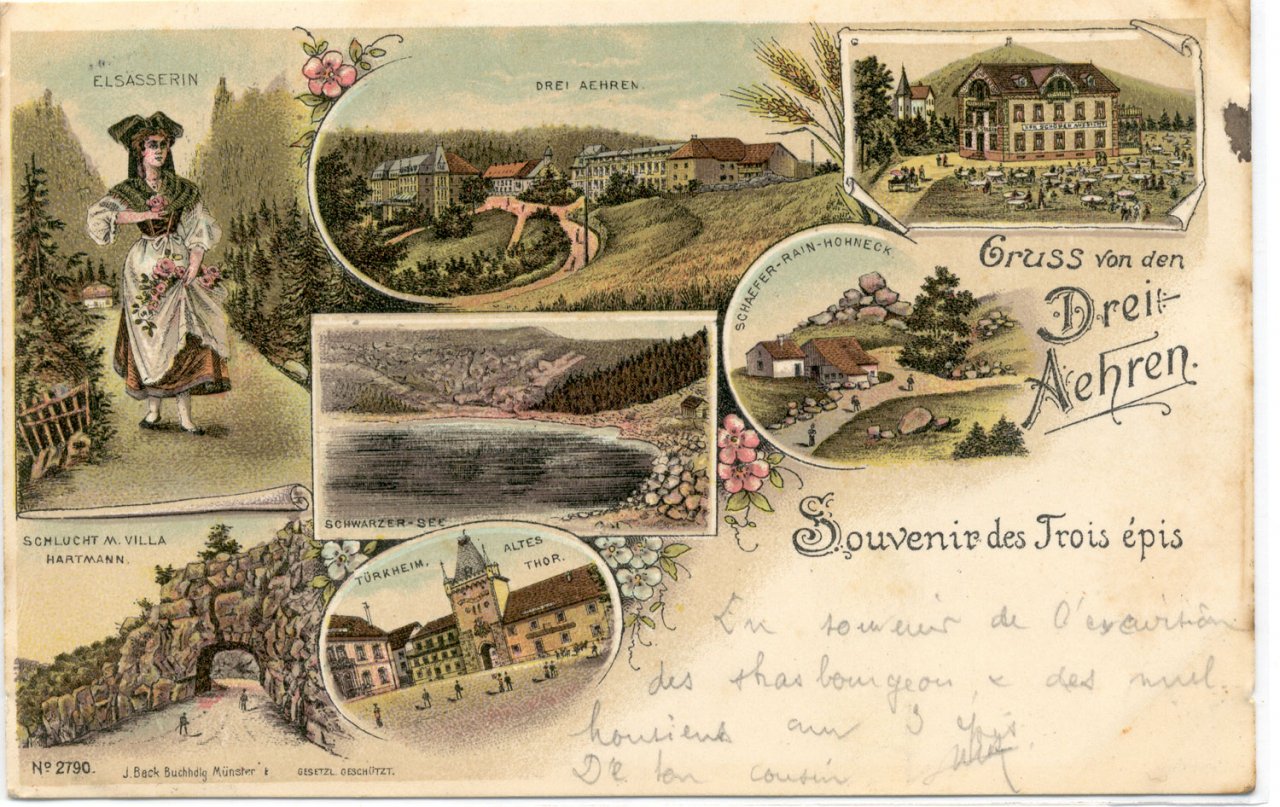 ELSÄSSERIN
DREI AEHREN.
Gruss von den
Drei-
Aehren.
SCHAEFER-RAIN-HOHNECK
SCHWARZER-SEE
Souvenir des Trois épis
SCHLUCHT M. VILLA
HARTMANN.
TÜRKHEIM. ALTES
THOR.
En souvenir de l'excursion
des strasbourgeois & des mul
housiens aux 3 Epis.
De ton cousin
No 2790.
J. Beck Buchhdlg Münster i/E
GESETZL. GESCHÜTZT.